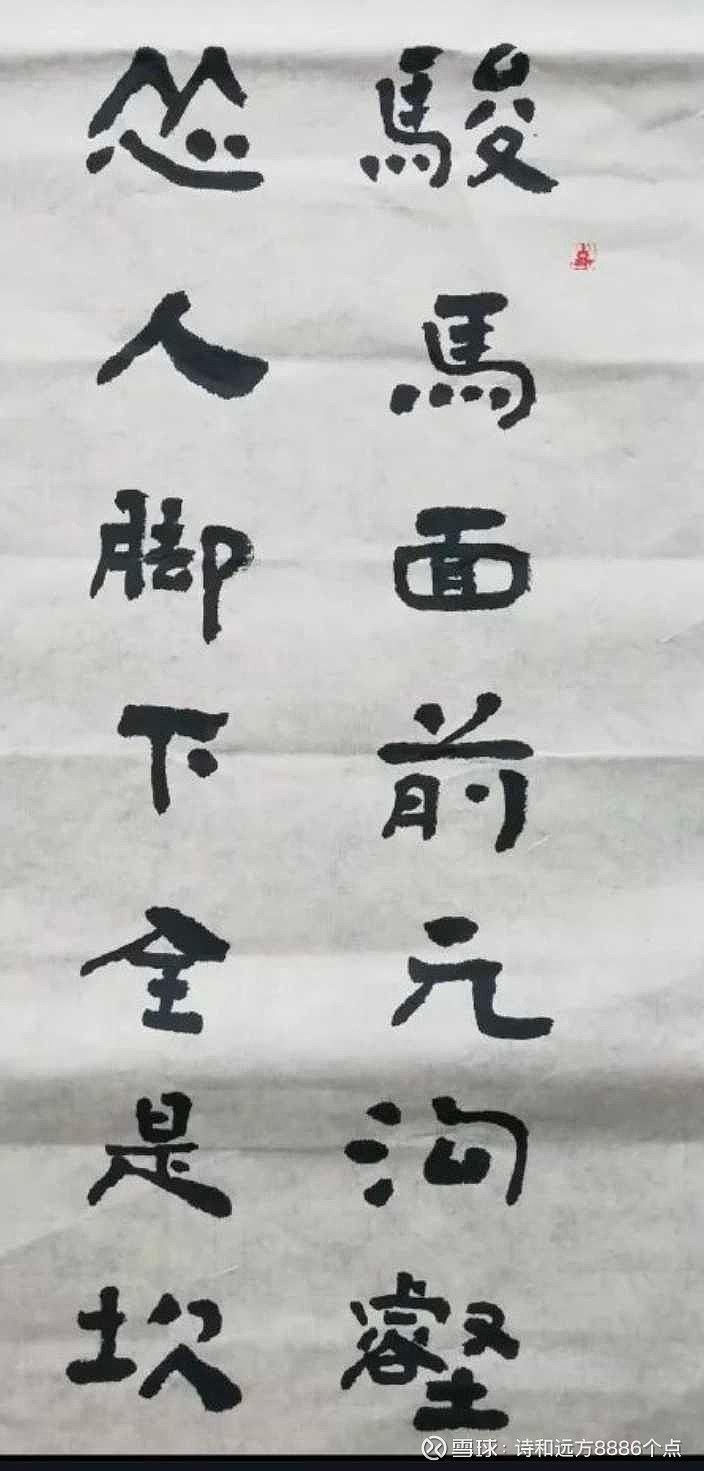 駿馬面前元沟壑
怂人脚下全是坎
雪球：诗和远方8886个点